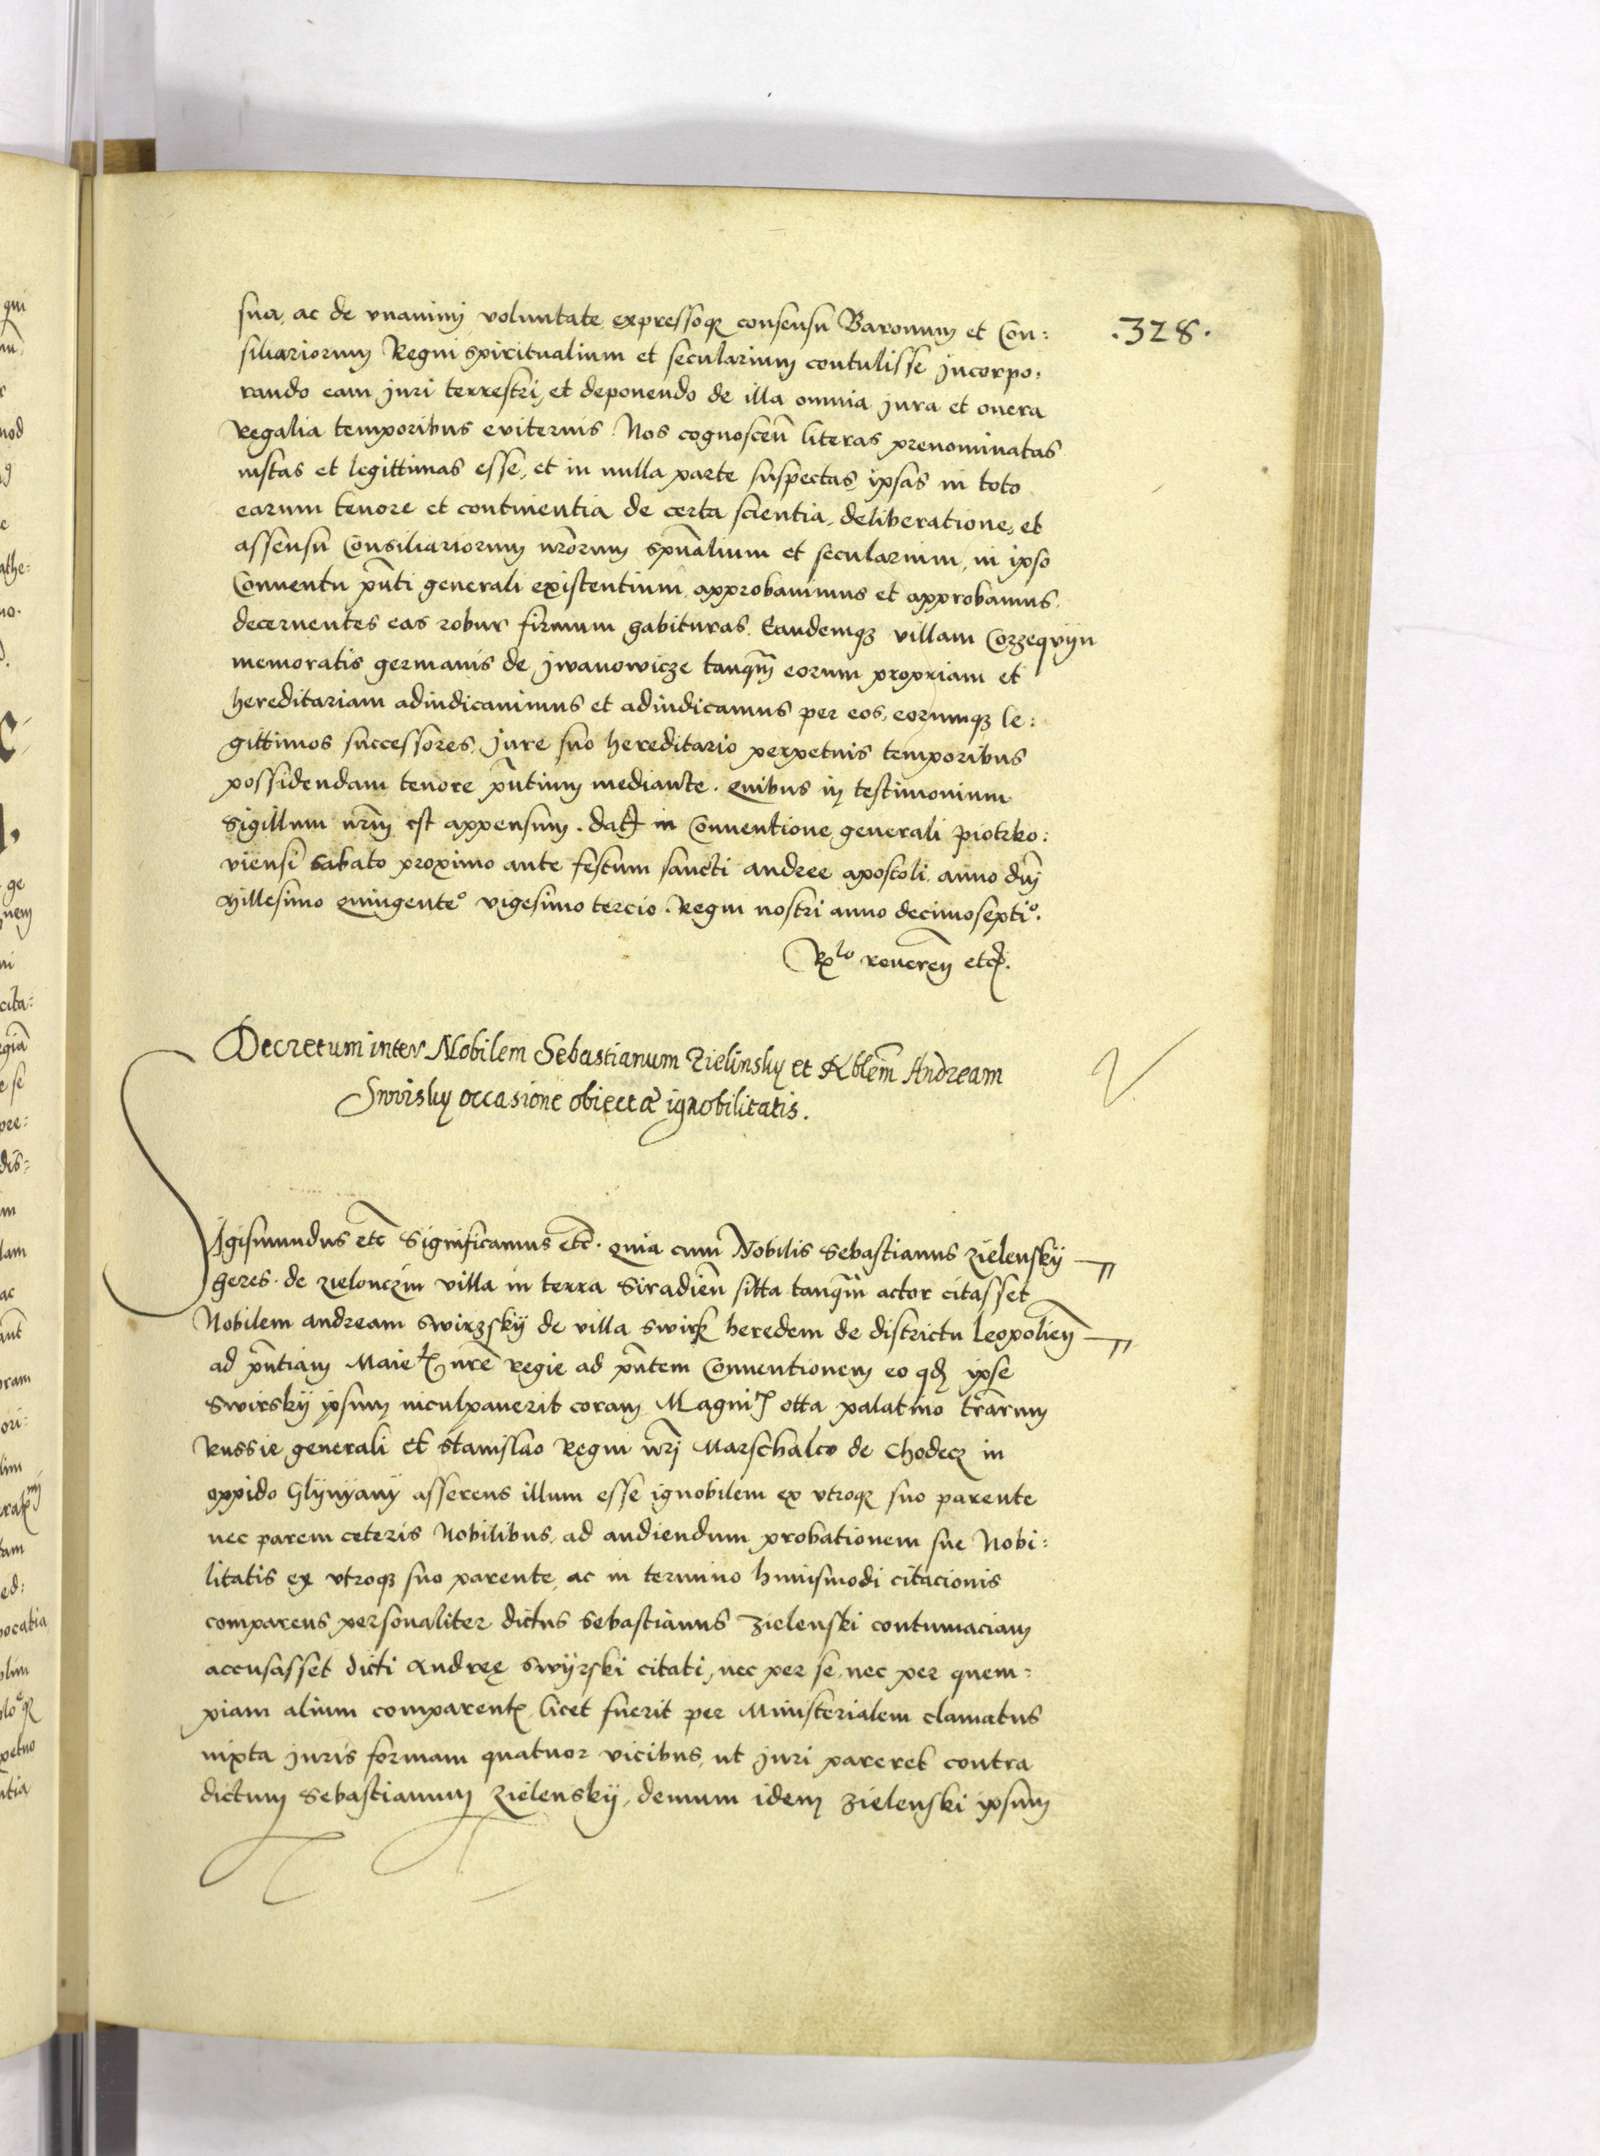 .328.
sua, ac de vnanimi voluntate expressoqz consensu Baronum et Con:
siliariorum Regni spiritualium et secularium contulisse jncorpo:
rando eam juri terrestri, et deponendo de illa omnia jura et onera
Regalia temporibus eviternis. Nos cognosceñ literas prenominatas
iustas et legittimas esse, et in nulla parte suspectas, ipsas in toto
earum tenore et continentia de certa scientia, deliberatione, et
assensu Consiliariorum nrorum spualium et secularium, in ipso
Conuentu pnti generali existentium approbauimus et approbamus.
decernentes eas robur firmum habituras. Eandemqz villam Corzeqvyn
memoratis germanis de jwanowicze tanqm eorum propriam et
hereditariam adiudicauimus et adiudicamus per eos, eorumqz le:
gittimos successores, jure suo hereditario perpetuis temporibus
possidendam tenore pntium mediante. quibus in testimonium
Sigillum nrm est appensum. dat in Conuentione generali piotrko:
viensi sabato proximo ante festum sancti andree apostoli. anno dni
Millesimo quingente° vigesimo tercio. Regni nostri anno decimosepti°.
Rlo reueren etc.
Decretum inter Nobilem Sebastianum Zielinsky et Nblem Andream
Swirsky occasione obiectæ ignobilitatis.
Sigismundus etc Significamus etc. quia cum Nobilis Sebastianus zielenskÿ
heres de zielonczin villa in terra Siradieñ sitta tanqm actor citasset
Nobilem andream swirzskÿ de villa swirz heredem de districtu leopolieñ
ad pntiam Maietz nre regie ad pntem Conuentionem eo qd ipse
Swirskÿ ipsum inculpauerit coram Magni otta palatino trarum
Russie generali et stanislao Regni nri Marschalco de Chodecz in
oppido Glÿnÿanÿ asserens illum esse ignobilem ex vtroqz suo parente
nec parem ceteris Nobilibus, ad audiendum probationem sue Nobi:
litatis ex vtroqz suo parente, ac in termino huiusmodi citacionis
comparens personaliter dictus Sebastianus Zielenski contumaciam
accusasset dicti Andreę Swÿrski citati, nec per se, nec per quem:
piam alium comparent, licet fuerit per Ministerialem clamatus
iuxta juris formam quatuor vicibus, ut juri pareret contra
dictum Sebastianum Zielenskÿ, demum idem Zielenski ipsum